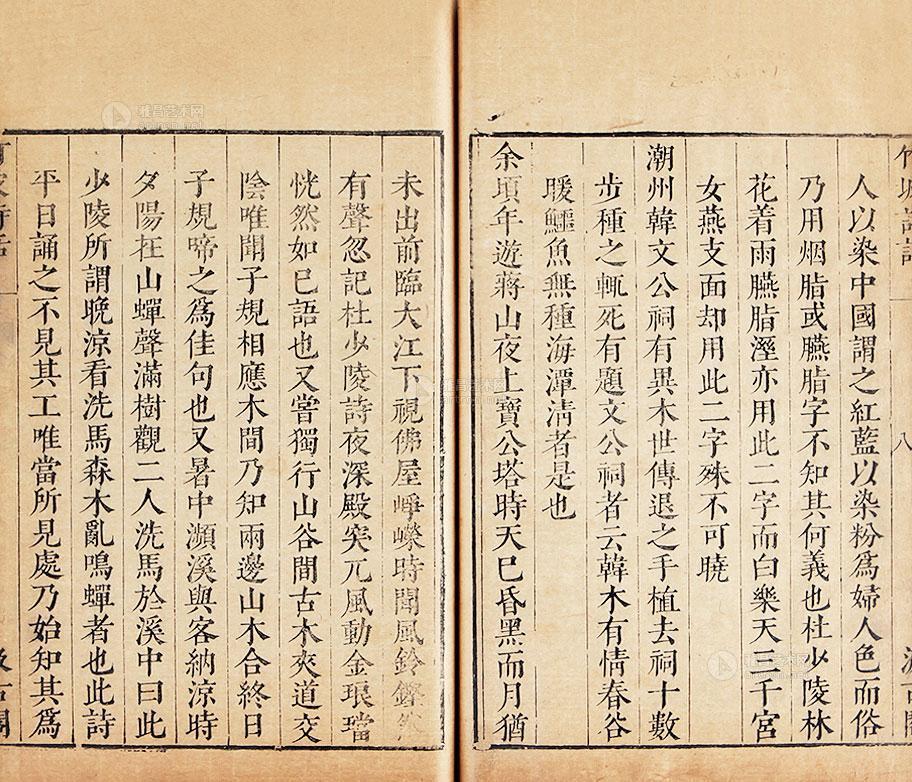 竹坡詩話
八
汲古閣
人以染中國謂之紅藍以染粉爲婦人色而俗
乃用烟脂或臙脂字不知其何義也杜少陵林
花着雨臙脂溼亦用此二字而白樂天三千宮
女燕支面却用此二字殊不可曉
潮州韓文公祠有異木世傳退之手植去祠十數
步種之輒死有題文公祠者云韓木有情春谷
暖鱷魚無種海潭淸者是也
余頃年遊蔣山夜上寶公塔時天巳昏黑而月猶
未出前臨大江下視佛屋崢嶸時聞風鈴鏗然
有聲忽記杜少陵詩夜深殿突兀風動金琅璫
恍然如巳語也又嘗獨行山谷間古木夾道交
陰唯聞子規相應木間乃知兩邊山木合終日
子規啼之爲佳句也又暑中瀕溪與客納涼時
夕陽在山蟬聲滿樹觀二人洗馬於溪中曰此
少陵所謂晩涼看洗馬森木亂鳴蟬者也此詩
平日誦之不見其工唯當所見處乃始知其爲
竹坡詩話
汲古閣
雅昌艺术网